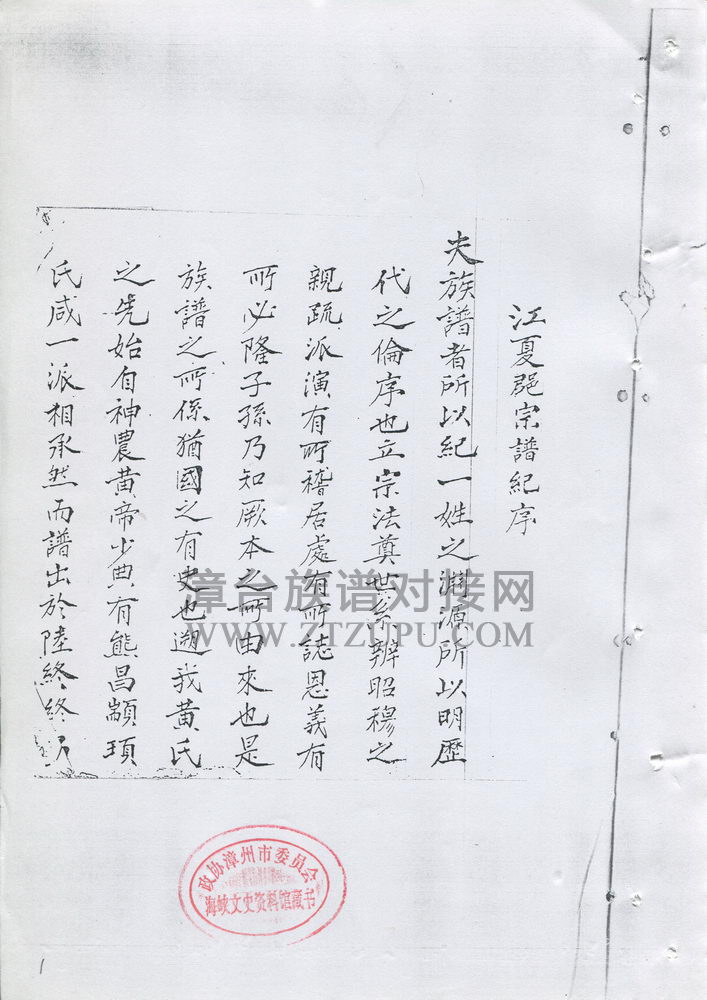 江夏郡宗譜紀序
夫族譜者所以紀一姓之淵源所以明歷
代之倫序也立宗法奠世系辨昭穆之
親疏派演有所稽居處有所誌恩義有
所必隆子孫乃知厥本之所由來也是
族譜之所係猶國之有史也遡我黄氏
之先始自神農黄帝少典有熊昌顓頊
氏咸一派相承然而譜出於陸終終
漳台族谱对接网
WWW.ZTZUPU.COM
政协漳州市委员会
海峡文史资料馆藏书
1